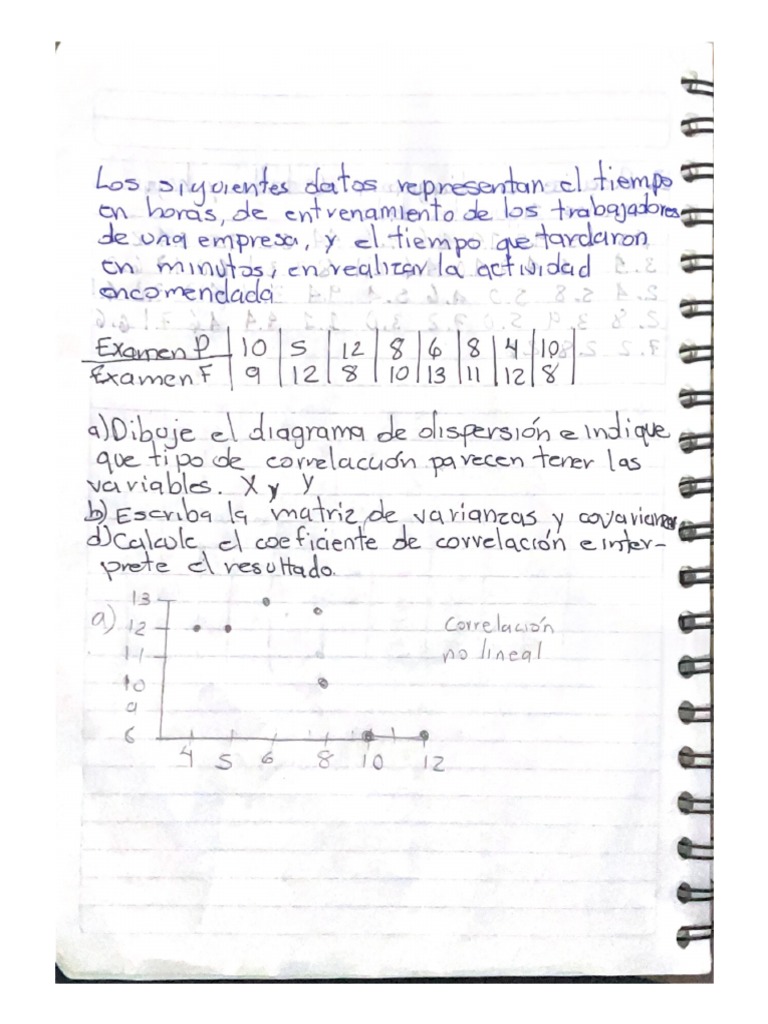 Los siguientes datos representan el tiempo
en horas, de entrenamiento de los trabajadores
de una empresa, y el tiempo que tardaron
en minutos, en realizar la actividad
encomendada
Examen P | 10 | 5 | 12 | 8 | 6 | 8 | 4 | 10
Examen F | 9 | 12 | 8 | 10 | 13 | 11 | 12 | 8
a) Dibuje el diagrama de dispersión e indique
que tipo de correlación parecen tener las
variables. X y Y
b) Escriba la matriz de varianzas y covarianzas
d) Calcule el coeficiente de correlación e inter-
prete el resultado.
a)
13
12
11
10
9
6
4 5 6 8 10 12
Correlación
no lineal